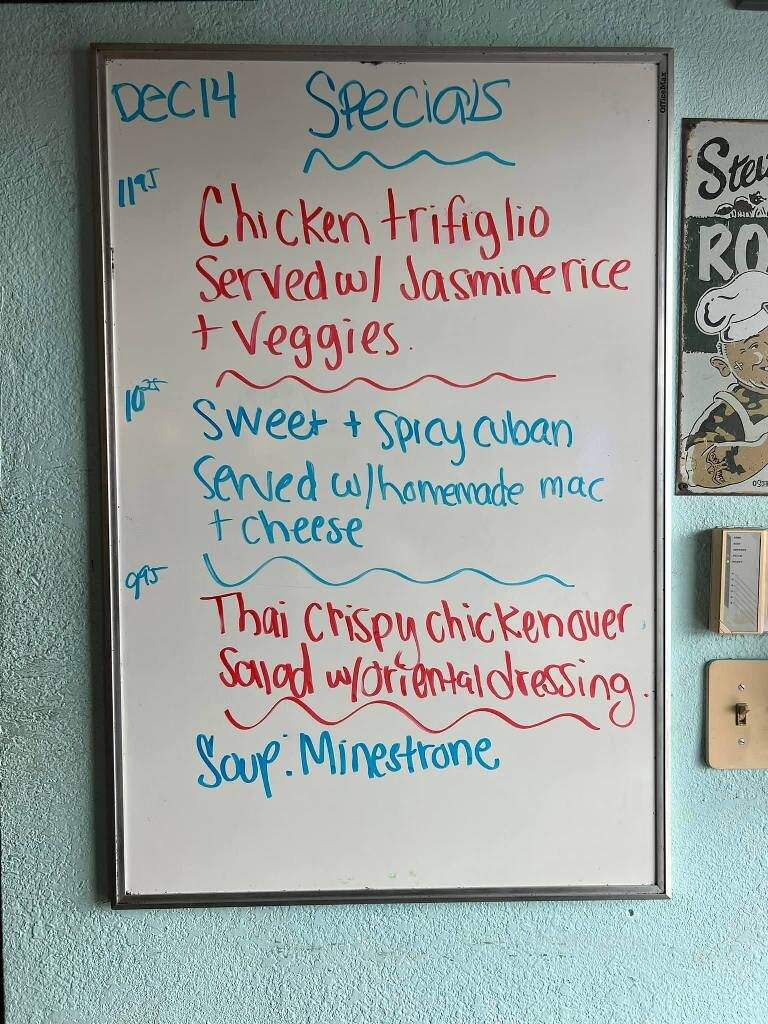 DEC 14 Specials
11 95
Chicken trifiglio
Served w/ Jasmine rice
+ Veggies.
10 25
Sweet + Spicy cuban
Served w/ homemade mac
+ cheese
9 95
Thai crispy chicken over
Salad w/ oriental dressing.
Soup: Minestrone
OfficeMax
Stev
RO